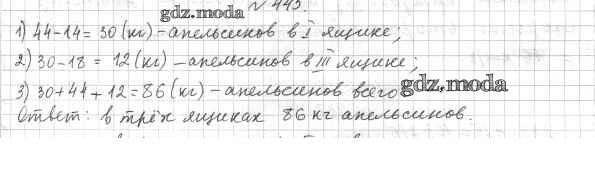 № 445.
gdz.moda
1) 44-14= 30 (кг) - апельсинов в I ящике;
2) 30-18 = 12 (кг) - апельсинов в III ящике;
3) 30+44+12=86 (кг) - апельсинов всего
gdz.moda
Ответ: в трёх ящиках 86 кг апельсинов.